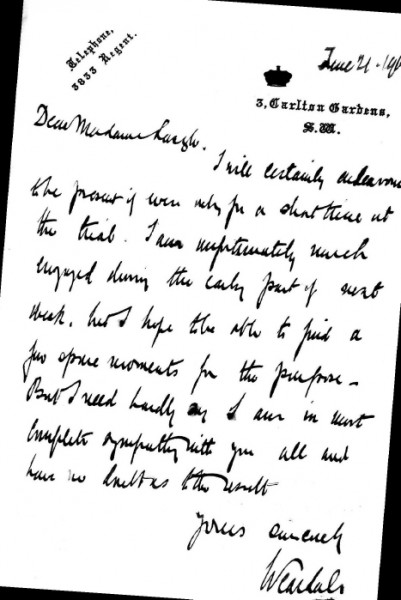 Telephone,
3833 Regent.
June 21. 190
3, Carlton Gardens,
S.W.
Dear Madame
I will certainly endeavour
to be present if even only for a short time at
the trial. I am unfortunately much
engaged during the early part of next
week, but I hope to be able to find a
few spare moments for the purpose –
But I need hardly say I am in most
complete sympathy with you all and
have no doubt as to the result
Yours sincerely